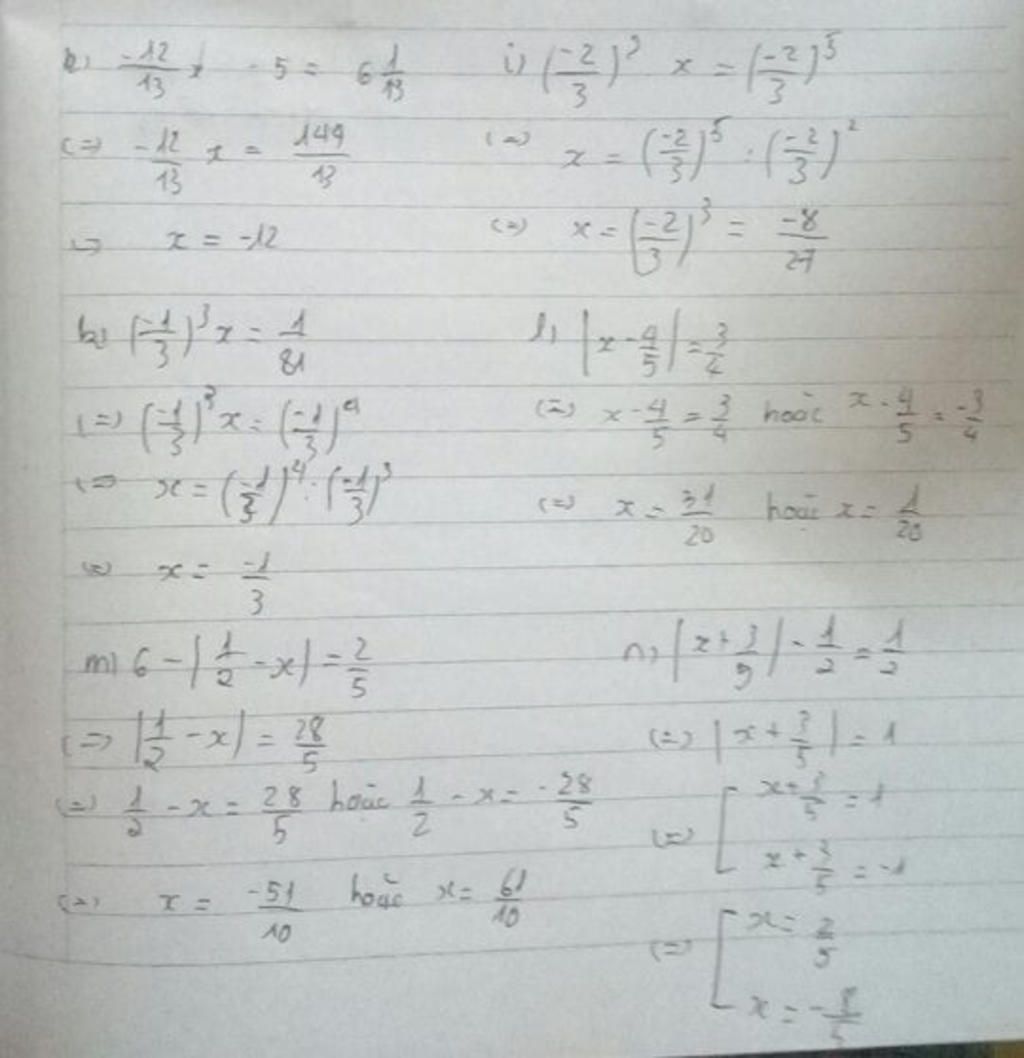 e) -12/13 x - 5 = 6 1/13
(=) -12/13 x = 144/13
x = -12
i) (-2/3)² x = (-2/3)⁵
(=) x = (-2/3)⁵ : (-2/3)²
(=) x = (-2/3)³ = -8/27
k) (-1/3)³ x = 1/81
(=) (-1/3)³ x = (-1/3)⁴
(=) x = (-1/3)⁴ : (-1/3)³
(=) x = -1/3
l) |x - 4/5| = 3/4
(=) x - 4/5 = 3/4 hoặc x - 4/5 = -3/4
(=) x = 31/20 hoặc x = 1/20
m) 6 - |1/2 - x| = 2/5
(=) |1/2 - x| = 28/5
(=) 1/2 - x = 28/5 hoặc 1/2 - x = -28/5
(=) x = -51/10 hoặc x = 61/10
n) |x + 3/5| - 1/2 = 1/2
(=) |x + 3/5| = 1
(=) [ x + 3/5 = 1
x + 3/5 = -1
(=) [ x = 2/5
x = -8/5